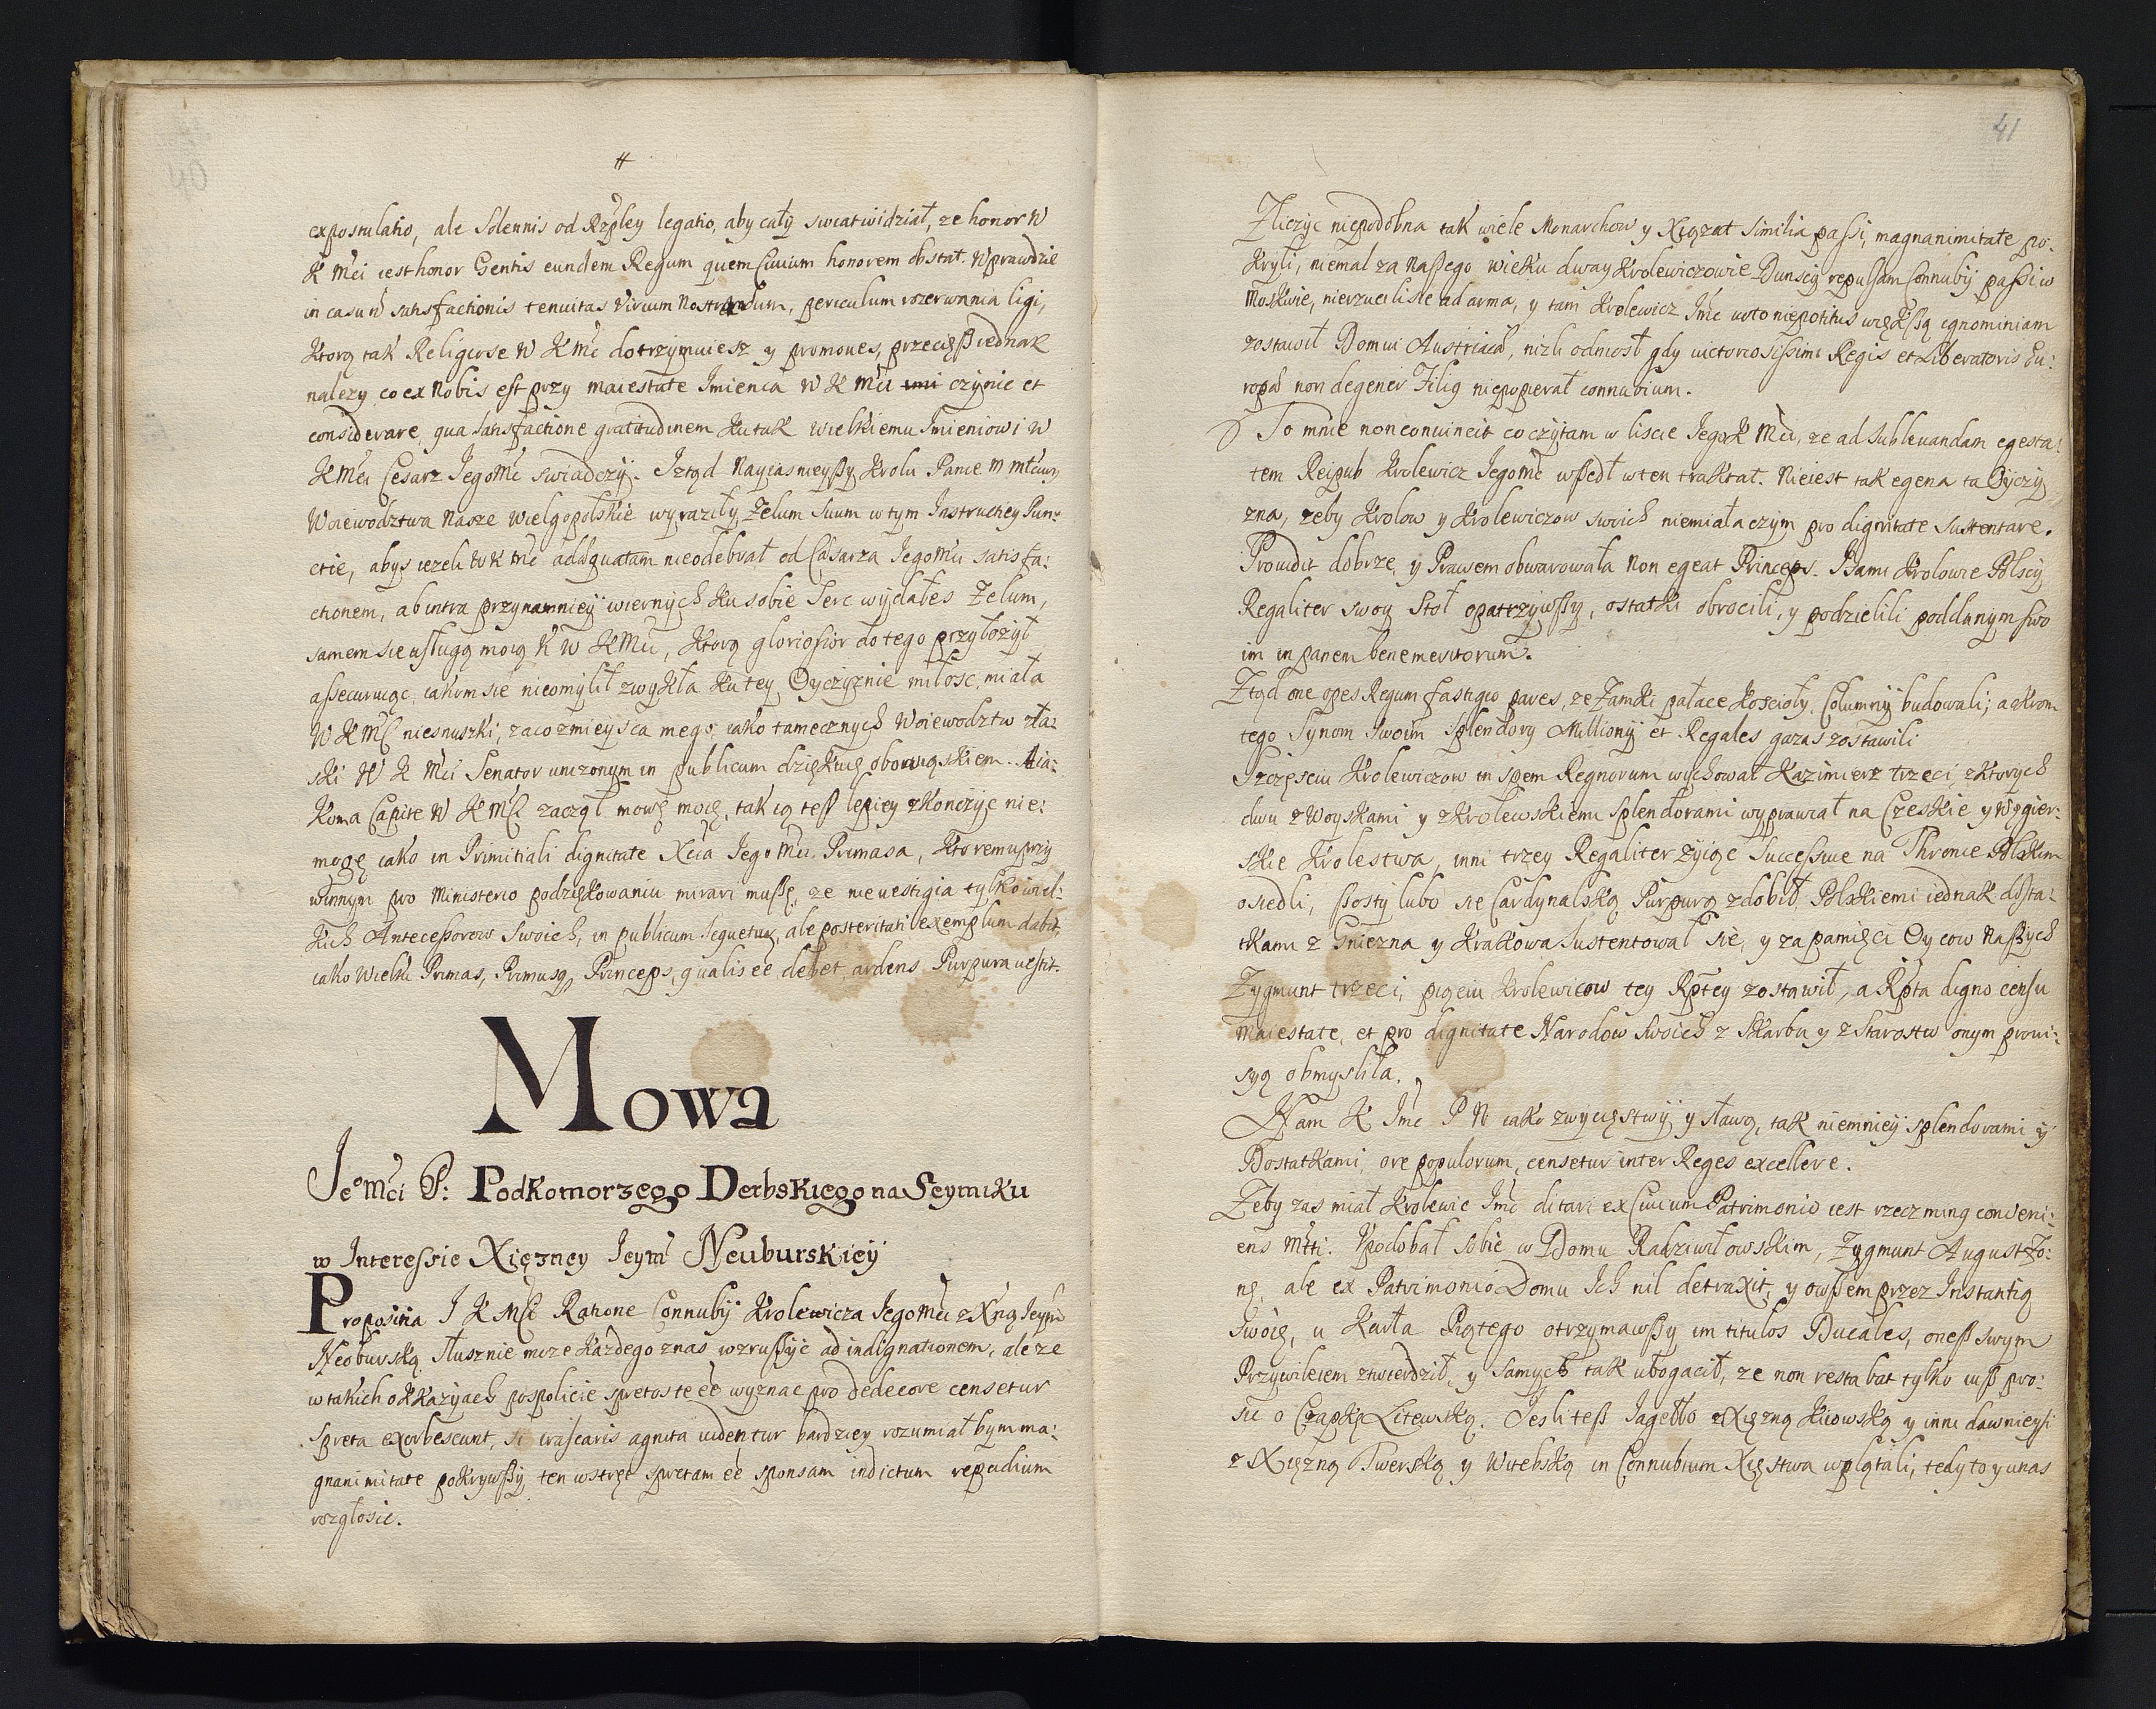 #
expostulatio, ale Solennis od Rzpley legatio, aby cały swiat widział, ze honor W
K Mci iest honor Gentis eundem Regum quem Civium honorem obstat. W prawdzie
in casu satisfactionis tenuitas virium periculum rozerwania ligi,
Ktorą tak Religiose W K Mć dotrzymuiesz y promoues, przecięß iednak
nalezy co ex Nobis est przy maiestate Imienia W K Mci czynic et
considerare, qua satisfactione gratitudinem Ku tak wielkiemu Imieniowi W
K Mci Cesarz Jego Mć swiadczy. Ztąd Nayiasnieyßy Krolu Panie M
Woiewodztwa Nasze Wielgopolskie wyraziły Zelum Suum w tym Instructiey Pun-
ctie, abys iezeli W K Mć adæquatam nieodebrał od Cæsarza Jego Mci satisfa:
ctionem, ab intra przynamnieÿ wiernych Ku sobie Serc wydałes Zelum,
samem sie usługą moią K W K Mci, Ktorą gloriosior do tego przyłożył
assecuruiąc, iakom sie nieomylił zwykła Ku tey Oyczyznie miłosc, miała
W K Mć niesnuszki, zaco z mieysca mego, iako tamecznych Woiewodztw z ła:
ski W K Mci Senator unizonym in publicum dziękuię obowiąskiem. A ia:
Koma Capite W K Mć zaczął mowę moię, tak ią teß lepiey zKonczyc nie:
mogę iako in Primitiali dignitate Xcia Jego Mci Primasa, Ktoremu przy
winnym pro Ministerio podziękowaniu mirari mußę, ze ne uestigia tylko wiel:
Kich Antecessorow Swoich, in publicum sequetur, ale posteritati exemplum dabit,
iako Wielki Primas, Primusq Princeps, qualis eē debet, ardens Purpura uestit.
Mowa
Jeo Mci P: Podkomorzego Derbskiego na Seymiku
w Interessie Xięzney Jeym Neuburskieÿ
Proposina J K Mci Ratione Connubÿ Krolewicza Jego Mci z Xną Jeym
Neoburską słusznie moze Każdego z nas wzrußyć ad indignationem, ale ze
w takich okkazyach pospolicie spretos te eē wyznac pro dedecore censetur
Spreta exorbescunt, si irascaris agnita uidentur bardziey rozumiał bym ma:
gnanimitate pokrywßy ten wstręt spretam eē sponsam indictum repudium
rozgłosic.
41
Zliczyc niepodobna tak wiele Monarchow y Xiązat similia passi, magnanimitate po-
Kryli, niemal za Naßego wieku dway Krolewiczowie Dunscy repulsam Connubÿ passi w
Moskwie, nierzucili sie ad arma, y tam Krolewicz Jmc uoto niepotitus większą ignominiam
zostawił Domui Austriacæ, nizli odniosł gdy uictoriosissimi Regis et Liberatoris Eu:
ropæ non degener Filią niepopierał connubium.
To mnie non conuincit co czytam w liscie Jego K Mci, ze ad Subleuandam egesta:
tem Reipub Krolewicz Jego Mć wßedł w ten traktat. Nie iest tak egena ta Oyczy
zna, zeby Krolow y Krolewiczow swoich niemiała czym pro dignitate Sustentare.
Prouidit dobrze y Prawem obwarowała Non egeat Princeps. Sami Krolowie Polscy
Regaliter swoy Stoł opatrzywßy, ostatki obrocili, y podzielili poddanym swo
im in panem benemeritorum.
Ztąd one opes Regum fastigio pares, ze Zamki pałace Koscioły, Columny budowali; a okrom
tego Synom Swoim Splendory Milliony et Regales gazas zostawili
Szczęsciu Krolewiczow in spem Regnorum wychował Kazimierz trzeci, z Ktorych
dwu z Woyskami y z Krolewskiemi splendorami wyprawiał na Czeskie y Węgier:
skie Krolestwa, inni trzey Regaliter zyiąc Successiue na Thronie Polskim
osiedli, ßosty lubo sie Cardynalską Purpurą zdobił, Polskiemi iednak dosta:
tkami z Gniezna y Krakowa Sustentował sie, y za pamięci Oycow Naßych
Zygmunt trzeci, pięciu Krolewicow tey Rptey zostawił, a Rpta digno censu
Maiestate, et pro dignitate Narodow Swoich z Skarbu y z Starostw onym prowi:
syą obmysliła.
Nam K Jmć P N iako zwycięstwÿ y sławą, tak niemnieÿ splendorami ÿ
Dostatkami, ore populorum, censetur inter Reges excellere.
Zeby zas miał Krolewic Jmć ditari ex Ciuium Patrimonio iest rzecz conveni:
ens Podobał sobie w Domu Radziwiłowskim, Zygmunt August Zo:
nę, ale ex Patrimonio Domu Ich nil detraxit, y owßem przez Instantią
Swoię, u Karła Piątego otrzymawßy im titulos Ducales, oneß swym
Przywileiem ztwierdził, y Samych tak ubogacił, ze non restabat tylko iuß pro:
sic o Czapkę Litewską. Jesliteß Jagełło z Xięzną Kiiowską y inni dawnieysi
z Xięzną Twerską y Witebską in Connubium Xięstwa wplątali, tedy to y unas